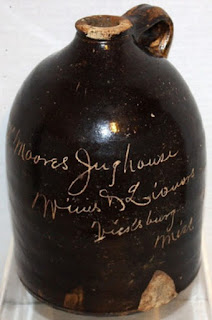 Moores Jughouse
Wines & Liquors
Vicksburg
Miss